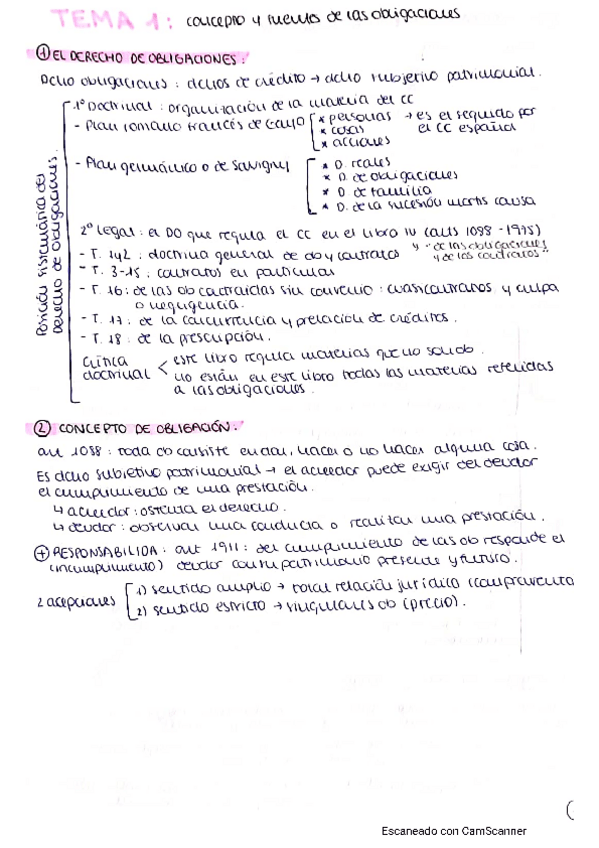 TEMA 1: concepto y fuentes de las obligaciones
① EL DERECHO DE OBLIGACIONES:
Dcho obligaciones: dchos de crédito → dcho subjetivo patrimonial.
Posición sistemática del Derecho de obligaciones.
1º Doctrinal: organización de la materia del CC
- Plan romano francés de Gayo
* personas → es el seguido por el CC español
* cosas
* acciones
- Plan germánico o de Savigny
* D. reales
* D. de obligaciones
* D. de familia
* D. de la sucesión mortis causa
2º Legal: el DO que regula el CC en el libro IV (arts 1088 - 1975)
"de las obligaciones y de los contratos"
- T. 1y2: doctrina general de do y contratos
- T. 3-15: contratos en particular
- T. 16: de las ob contraidas sin convenio: cuasicontratos y culpa
o negligencia.
- T. 17: de la concurrencia y prelación de créditos.
- T. 18: de la prescripción.
Crítica doctrinal
este libro regula materias que no son do.
no están en este libro todas las materias referidas
a las obligaciones.
② CONCEPTO DE OBLIGACIÓN.
art 1088: toda ob consiste en dar, hacer o no hacer alguna cosa.
Es dcho subjetivo patrimonial → el acreedor puede exigir del deudor
el cumplimiento de una prestación.
↳ acreedor: ostenta el derecho.
↳ deudor: observar una conducta o realizar una prestación.
⊕ RESPONSABILIDA: art 1911: del cumplimiento de las ob responde el
(incumplimiento) deudor con su patrimonio presente y futuro.
2 acepciones
1) sentido amplio → total relación jurídica (compraventa
2) sentido estricto → singulares ob (precio).
(
Escaneado con CamScanner